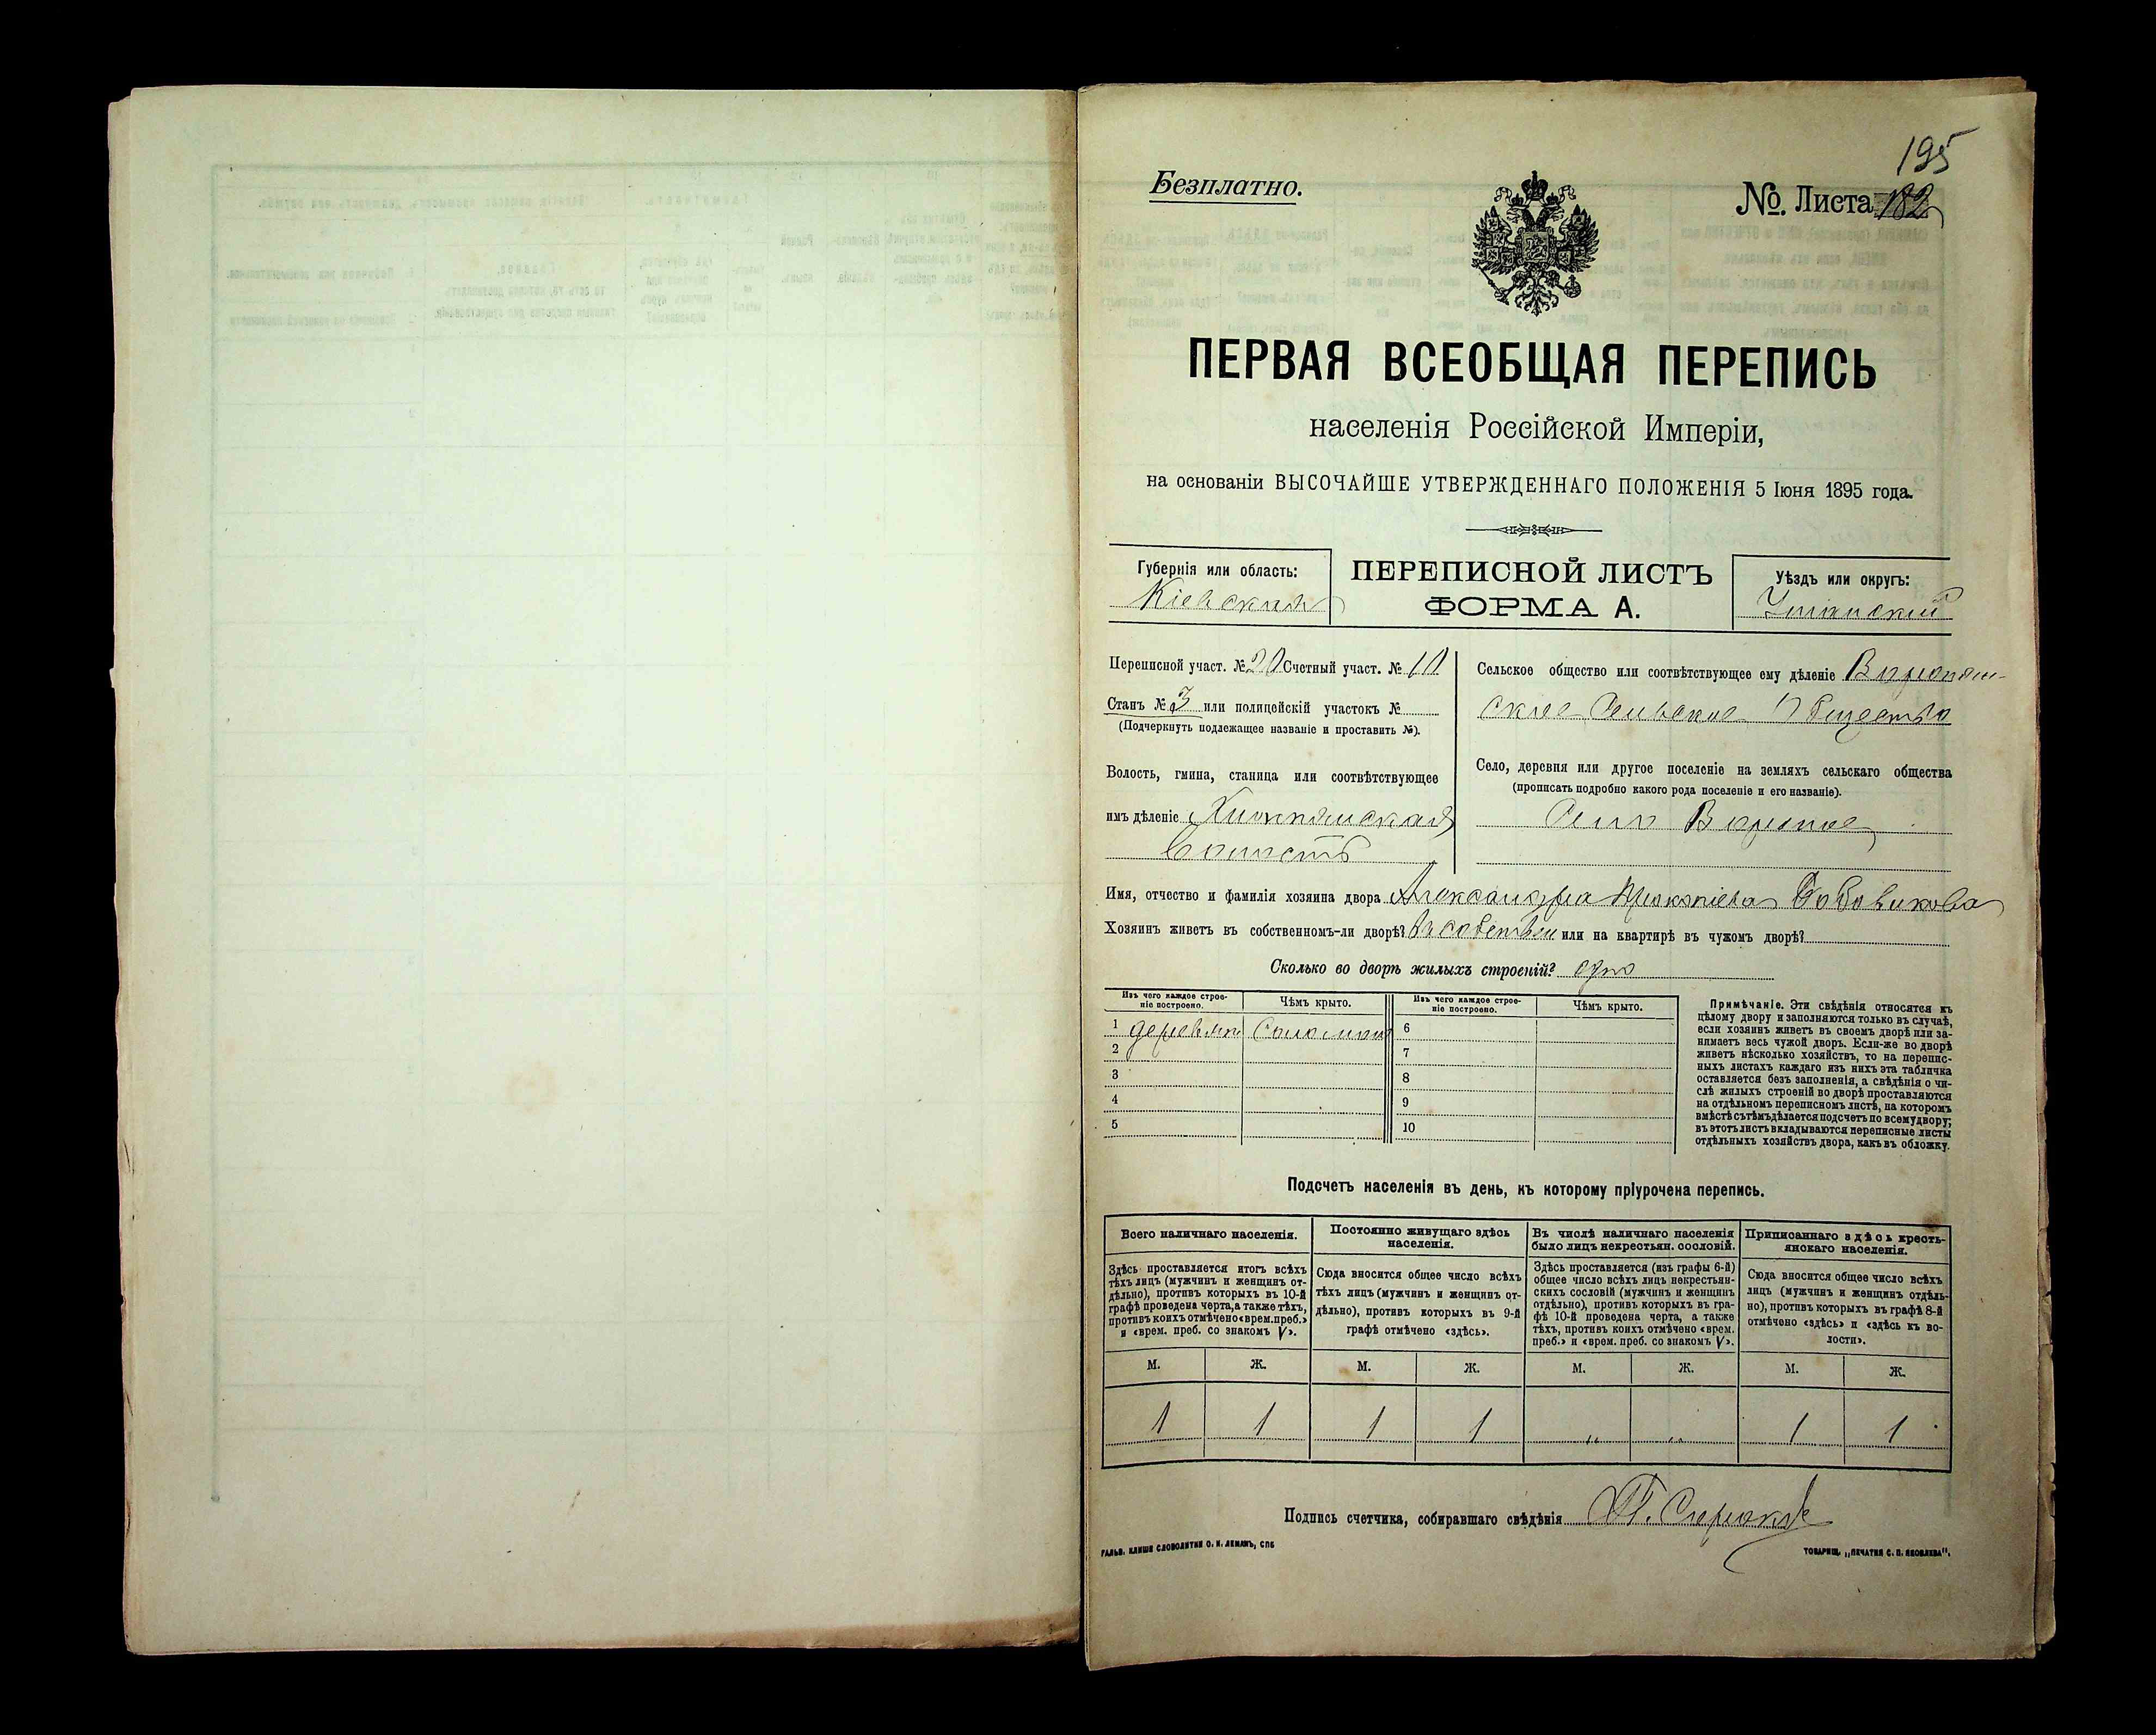 195
Безплатно.
№. Листа 182
ПЕРВАЯ ВСЕОБЩАЯ ПЕРЕПИСЬ
населенія Россійской Имперіи,
на основаніи ВЫСОЧАЙШЕ УТВЕРЖДЕННАГО ПОЛОЖЕНІЯ 5 Іюня 1895 года.
Губернія или область:
Кіевская
ПЕРЕПИСНОЙ ЛИСТЪ
ФОРМА А.
Уѣздъ или округъ:
Уманскій
Переписной участ. № 20 Счетный участ. № 10
Станъ № 3 или полицейскій участокъ №
(Подчеркнуть подлежащее названіе и проставить №).
Волость, гмина, станица или соотвѣтствующее
имъ дѣленіе
Волость
Сельское общество или соотвѣтствующее ему дѣленіе
ское Сельское Общество
Село, деревня или другое поселеніе на земляхъ сельскаго общества
(прописать подробно какого рода поселеніе и его названіе).
Село
Имя, отчество и фамилія хозяина двора Александра Прокопіева
Хозяинъ живетъ въ собственномъ-ли дворѣ? въ собствен или на квартирѣ въ чужомъ дворѣ?
Сколько во дворѣ жилыхъ строеній? одно
Изъ чего каждое строе-
ніе построено.
Чѣмъ крыто.
Изъ чего каждое строе-
ніе построено.
Чѣмъ крыто.
1 деревян Соломою
2
3
4
5
6
7
8
9
10
Примѣчаніе. Эти свѣдѣнія относятся къ
цѣлому двору и заполняются только въ случаѣ,
если хозяинъ живетъ въ своемъ дворѣ или за-
нимаетъ весь чужой дворъ. Если-же во дворѣ
живетъ нѣсколько хозяйствъ, то на перепис-
ныхъ листахъ каждаго изъ нихъ эта табличка
оставляется безъ заполненія, а свѣдѣнія о чи-
слѣ жилыхъ строеній во дворѣ проставляются
на отдѣльномъ переписномъ листѣ, на которомъ
вмѣстѣ съ тѣмъ дѣлается подсчетъ по всему двору;
въ этотъ листъ вкладываются переписные листы
отдѣльныхъ хозяйствъ двора, какъ въ обложку.
Подсчетъ населенія въ день, къ которому пріурочена перепись.
Всего наличнаго населенія.
Здѣсь проставляется итогъ всѣхъ
тѣхъ лицъ (мужчинъ и женщинъ от-
дѣльно), противъ которыхъ въ 10-й
графѣ проведена черта, а также тѣхъ,
противъ коихъ отмѣчено «врем. преб.»
и «врем. преб. со знакомъ V».
Постоянно живущаго здѣсь
населенія.
Сюда вносится общее число всѣхъ
тѣхъ лицъ (мужчинъ и женщинъ от-
дѣльно), противъ которыхъ въ 9-й
графѣ отмѣчено «здѣсь».
Въ числѣ наличнаго населенія
было лицъ некрестьян. сословій.
Здѣсь проставляется (изъ графы 6-й)
общее число всѣхъ лицъ некрестьян-
скихъ сословій (мужчинъ и женщинъ
отдѣльно), противъ которыхъ въ гра-
фѣ 10-й проведена черта, а также
тѣхъ, противъ коихъ отмѣчено «врем.
преб.» и «врем. преб. со знакомъ V».
Приписаннаго здѣсь кресть-
янскаго населенія.
Сюда вносится общее число всѣхъ
лицъ (мужчинъ и женщинъ отдѣль-
но), противъ которыхъ въ графѣ 8-й
отмѣчено «здѣсь» и «здѣсь къ во-
лости».
М. Ж. М. Ж. М. Ж. М. Ж.
1 1 1 1 „ „ 1 1
Подпись счетчика, собиравшаго свѣдѣнія
ГАЛЬВ. КЛИШЕ СЛОВОЛИТНИ О. И. ЛЕМАНЪ, СПБ
ТОВАРИЩ. „ПЕЧАТНЯ С. П. ЯКОВЛЕВА".